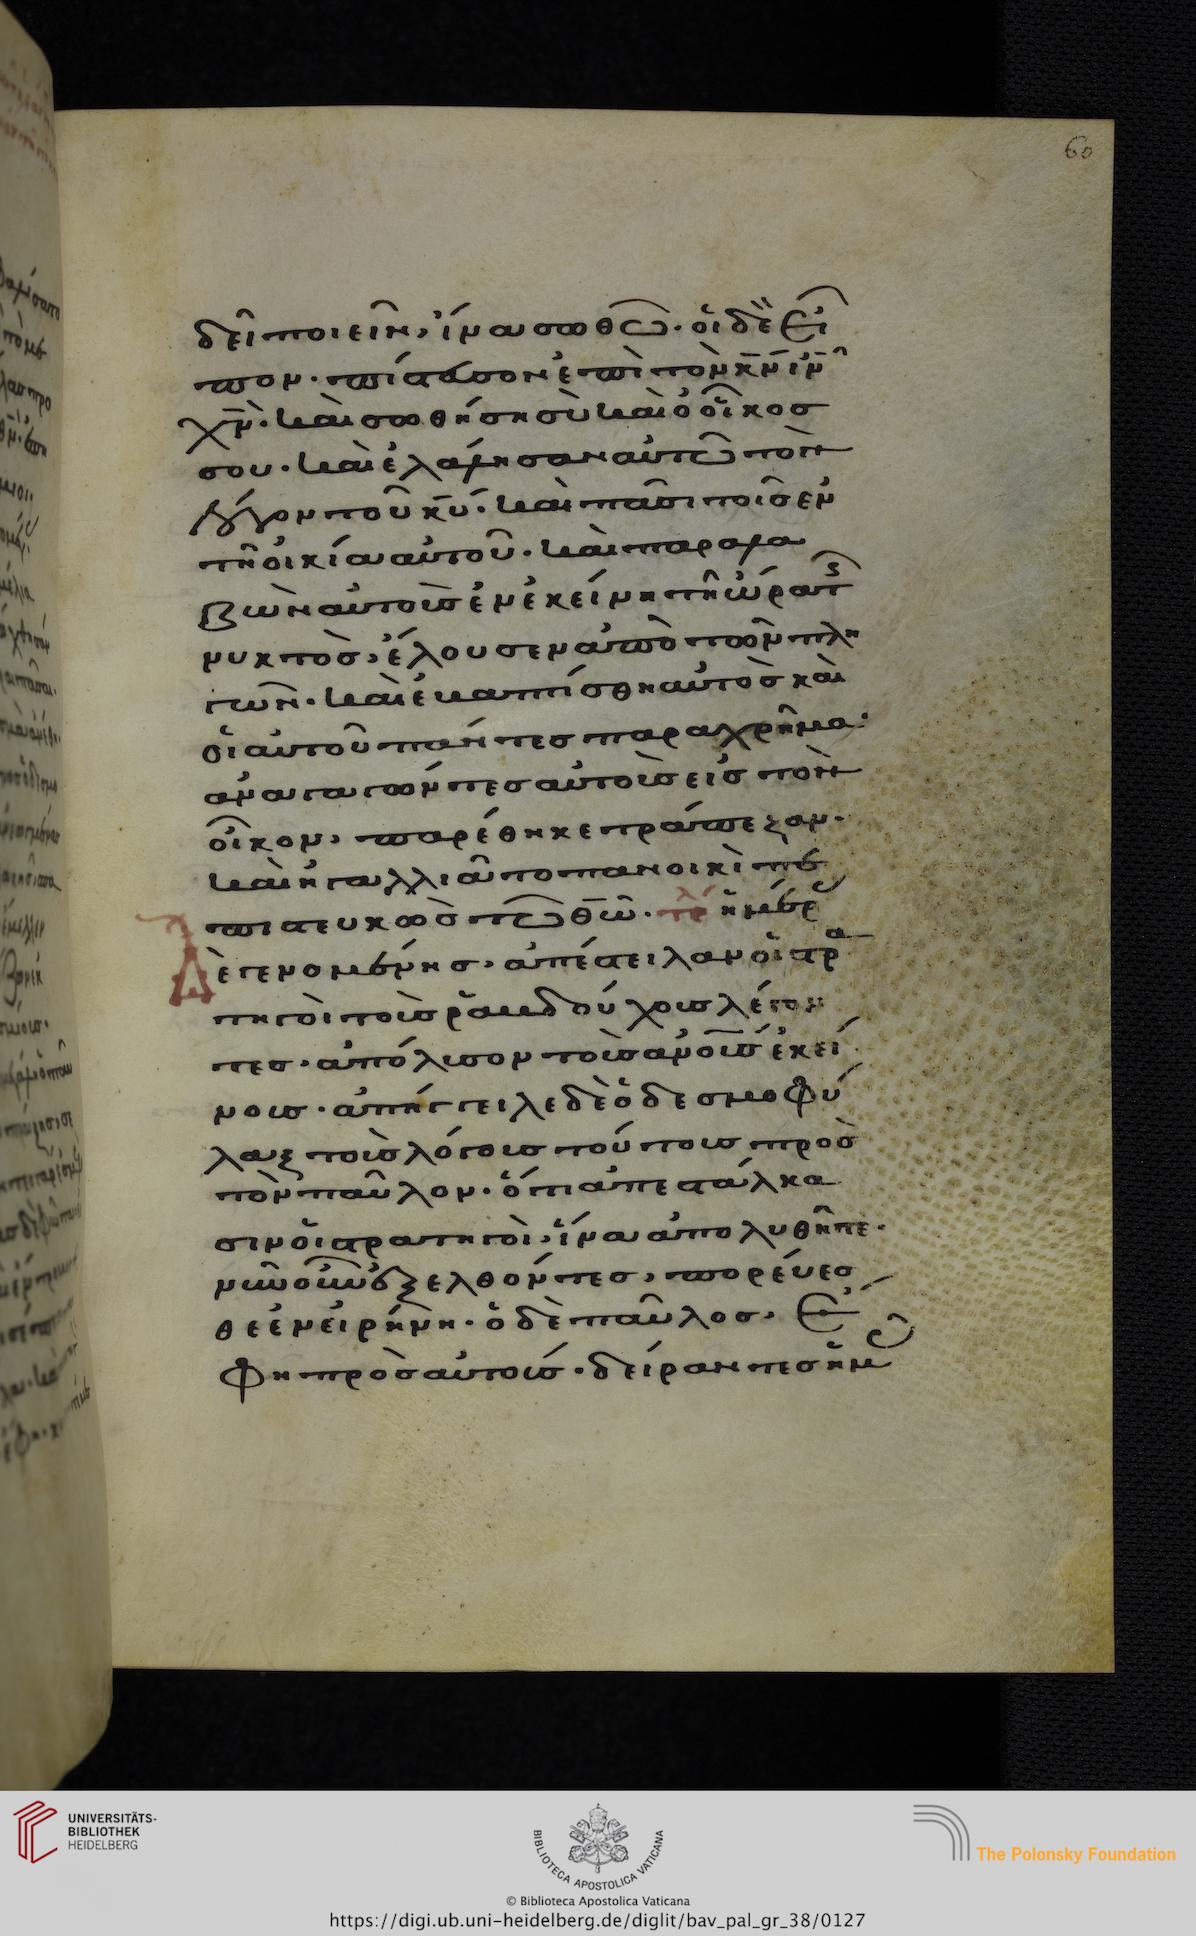 60
δεῖ ποιεῖν, ἵνα σωθῶ. οἱ δὲ εἶ
πον. πίστευσον ἐπὶ τὸν κ̅ν̅ ι̅ν̅
χ̅ν̅. καὶ σωθήσῃ σὺ καὶ ὁ οἶκος
σου. καὶ ἐλάλησαν αὐτῶ τὸν
λόγον τοῦ κ̅υ̅. καὶ πᾶσι τοῖς ἐν
τῇ οἰκία αὐτοῦ. καὶ παραλα
βὼν αὐτοὺς ἐν ἐκείνη τῇ ὥρα τῆς
νυκτὸς, ἔλουσεν ἀπὸ τῶν πλη
γῶν. καὶ ἐβαπτίσθη αὐτὸς καὶ
οἱ αὐτοῦ πάντες παραχρῆμα.
ἀναγαγόντες αὐτοὺς εἰς τὸν
οἶκον, παρέθηκε τράπεζαν.
καὶ ἠγαλλιᾶτο πανοικὶ πε
πιστευκὼς τῶ θ̅ω̅. ἡμέρ
Δὲ γενομένης, ἀπέστειλαν οἱ στρα
τηγοὶ τοὺς ῥαβδούχους λέγον
τες. ἀπόλυσον τοὺς α̅ν̅ο̅υς ἐκεί
νους. ἀπήγγειλε δὲ ὁ δεσμοφύ
λαξ τοὺς λόγους τούτους πρὸς
τὸν παῦλον. ὅτι ἀπεστάλκα
σιν οἱ στρατηγοὶ, ἵνα ἀπολυθῆτε.
νῦν οὖν ἐξελθόντες, πορεύεσ
θε ἐν εἰρήνη. ὁ δὲ παῦλος, ἔ
φη πρὸς αὐτούς. δείραντες ἡμ
UNIVERSITÄTS-
BIBLIOTHEK
HEIDELBERG
BIBLIOTECA APOSTOLICA VATICANA
The Polonsky Foundation
© Biblioteca Apostolica Vaticana
https://digi.ub.uni-heidelberg.de/diglit/bav_pal_gr_38/0127